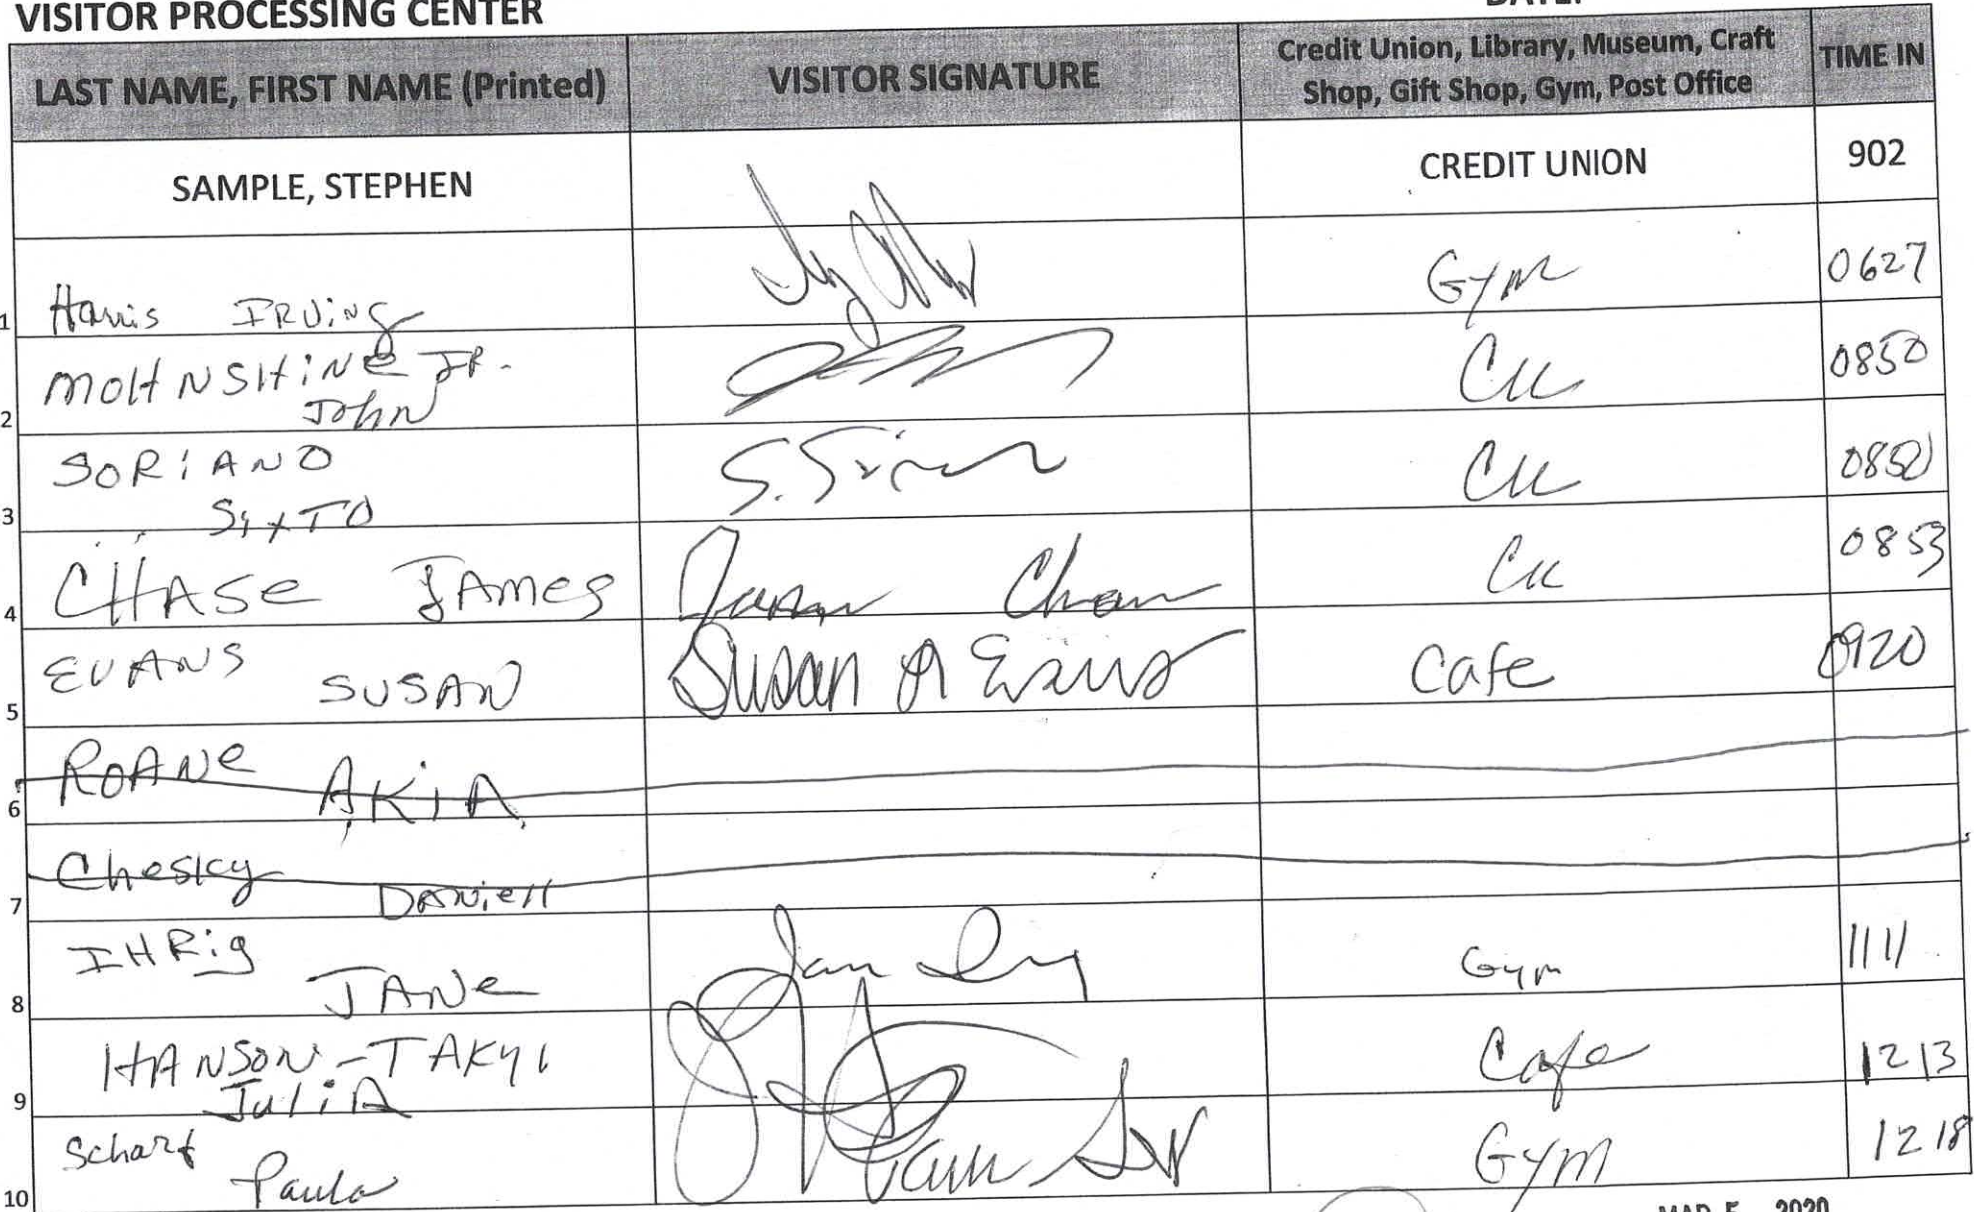 VISITOR PROCESSING CENTER
DATE:
LAST NAME, FIRST NAME (Printed) VISITOR SIGNATURE Credit Union, Library, Museum, Craft Shop, Gift Shop, Gym, Post Office TIME IN
SAMPLE, STEPHEN CREDIT UNION 902
1 Harris IRVing Gym 0627
2 MOHNSHiNe JR. CU 0850
John
3 SORiANO CU 0850
SixTO
4 CHASe JAMes CU 0853
5 EVANS SUSAN Susan A Evans Cafe 0920
6 ROANe AKiA
7 Chesky DANiell
8 IHRig Gym 1111
JANe
9 HANSON-TAKYI Cafe 1213
JuliA
10 Scharf Gym 1218
Paula
MAR 5 2020